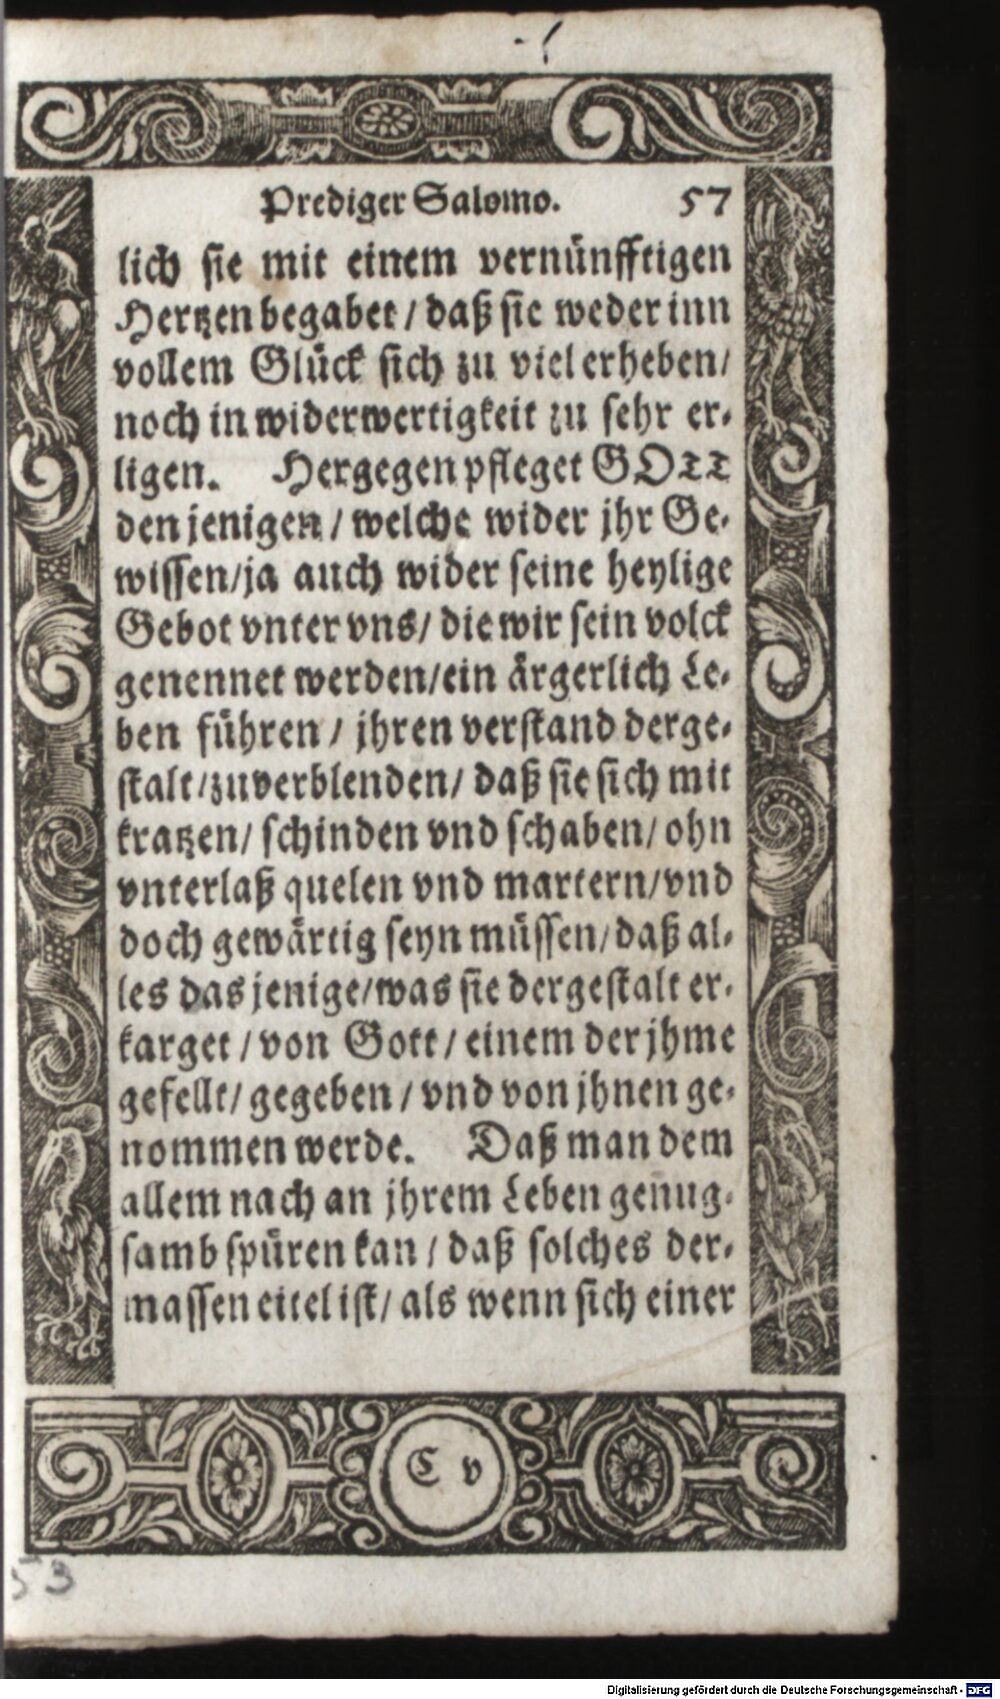 Prediger Salomo. 57
lich sie mit einem vernünfftigen
Hertzen begabet / daß sie weder inn
vollem Glück sich zu viel erheben /
noch in widerwertigkeit zu sehr er-
ligen. Hergegen pfleget GOTT
den jenigen / welche wider jhr Ge-
wissen / ja auch wider seine heylige
Gebot vnter vns / die wir sein volck
genennet werden / ein ärgerlich Le-
ben führen / jhren verstand derge-
stalt / zuverblenden / daß sie sich mit
kratzen / schinden vnd schaben / ohn
vnterlaß quelen vnd martern / vnd
doch gewärtig seyn müssen / daß al-
les das jenige / was sie dergestalt er-
karget / von Gott / einem der jhme
gefellt / gegeben / vnd von jhnen ge-
nommen werde. Daß man dem
allem nach an jhrem Leben genug-
samb spüren kan / daß solches der-
massen eitel ist / als wenn sich einer
C v
53
Digitalisierung gefördert durch die Deutsche Forschungsgemeinschaft - DFG